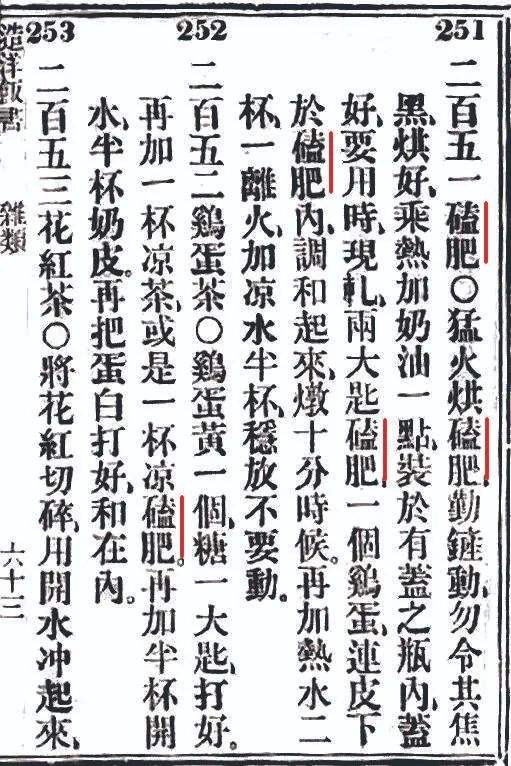 251
二百五一磕肥○猛火烘磕肥、勤鏟動、勿令其焦
黑、烘好、乘熱加奶油一點、裝於有蓋之瓶內、蓋
好、要用時、現軋、兩大匙磕肥一個鷄蛋、連皮下
於磕肥內、調和起來、燉十分時候。再加熱水二
杯、一離火、加凉水半杯、穩放不要動。
252
二百五二鷄蛋茶○鷄蛋黃一個、糖一大匙、打好。
再加一杯凉茶、或是一杯凉磕肥。再加半杯開
水、半杯奶皮。再把蛋白打好、和在內。
253
二百五三花紅茶○將花紅切碎、用開水冲起來、
造洋飯書 雜類 六十三